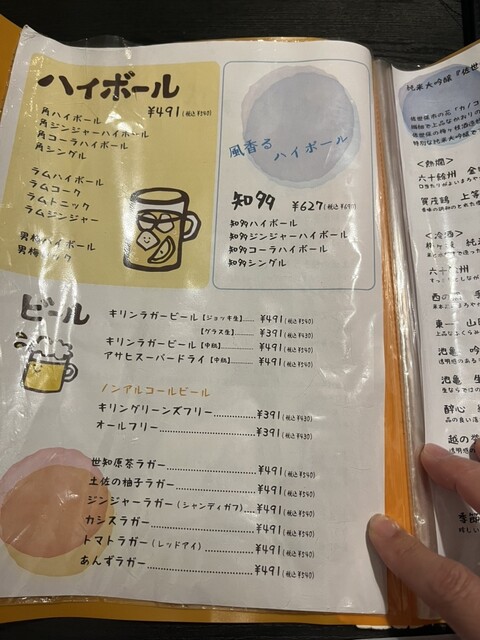 ハイボール
¥491(税込¥540)
角ハイボール
角ジンジャーハイボール
角コーラハイボール
角シングル
ラムハイボール
ラムコーク
ラムトニック
ラムジンジャー
男梅ハイボール
男梅
風香る
ハイボール
知多 ¥627(税込¥690)
知多ハイボール
知多ジンジャーハイボール
知多コーラハイボール
知多シングル
ビール
キリンラガービール【ジョッキ生】……¥491(税込¥540)
【グラス生】……¥391(税込¥430)
キリンラガービール【中瓶】……¥491(税込¥540)
アサヒスーパードライ【中瓶】……¥491(税込¥540)
ノンアルコールビール
キリングリーンズフリー……¥391(税込¥430)
オールフリー……¥391(税込¥430)
世知原茶ラガー……¥491(税込¥540)
土佐の柚子ラガー……¥491(税込¥540)
ジンジャーラガー(シャンディガフ)……¥491(税込¥540)
カシスラガー……¥491(税込¥540)
トマトラガー(レッドアイ)……¥491(税込¥540)
あんずラガー……¥491(税込¥540)
純米大吟醸『佐世
<熱燗>
六十餘州
賀茂鶴 上等
<冷酒>
六十
西の
東一 山田
池亀 吟
池亀 生
酔心
越の誉
季節